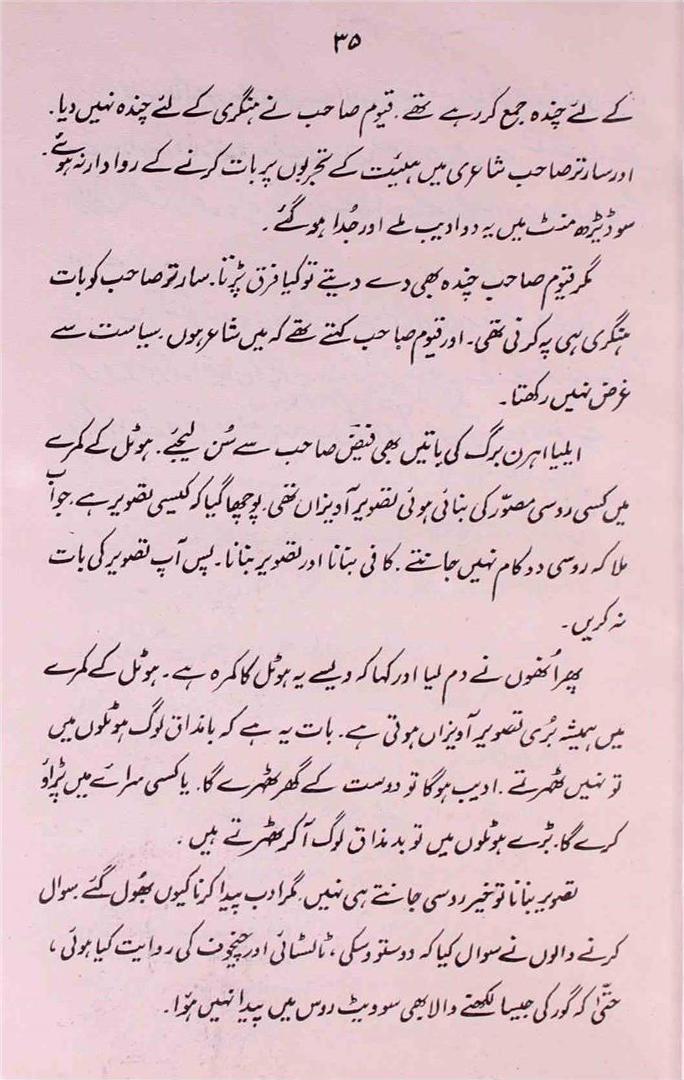 ۳۵
کے لئے چندہ جمع کر رہے تھے۔ قیوم صاحب نے ہنگری کے لئے چندہ نہیں دیا۔
اور سارتر صاحب شاعری میں ہیئت کے تجربوں پر بات کرنے کے روادار نہ ہوئے۔
سو ڈیڑھ منٹ میں یہ دو ادیب ملے اور جُدا ہو گئے۔
مگر قیوم صاحب چندہ بھی دے دیتے تو کیا فرق پڑتا۔ سارتر صاحب کو بات
ہنگری ہی پہ کرنی تھی۔ اور قیوم صاحب کہتے تھے کہ میں شاعر ہوں۔ سیاست سے
غرض نہیں رکھتا۔
ایلیا اہرن برگ کی باتیں بھی فیض صاحب سے سُن لیجئے۔ ہوٹل کے کمرے
میں کسی روسی مصوّر کی بنائی ہوئی تصویر آویزاں تھی۔ پوچھا گیا کہ کیسی تصویر ہے۔ جواب
ملا کہ روسی دو کام نہیں جانتے۔ کافی بنانا اور تصویر بنانا۔ پس آپ تصویر کی بات
نہ کریں۔
پھر اُنھوں نے دم لیا اور کہا کہ ویسے یہ ہوٹل کا کمرہ ہے۔ ہوٹل کے کمرے
میں ہمیشہ بُری تصویر آویزاں ہوتی ہے۔ بات یہ ہے کہ بامذاق لوگ ہوٹلوں میں
تو نہیں ٹھہرتے۔ ادیب ہوگا تو دوست کے گھر ٹھہرے گا۔ یا کسی سرائے میں پڑاؤ
کرے گا۔ بڑے ہوٹلوں میں تو بدمذاق لوگ آ کر ٹھہرتے ہیں۔
تصویر بنانا تو خیر روسی جانتے ہی نہیں۔ مگر ادب پیدا کرنا کیوں بھُول گئے۔ سوال
کرنے والوں نے سوال کیا کہ دوستووسکی، ٹالسٹائی اور چیخوف کی روایت کیا ہوئی،
حتّیٰ کہ گورکی جیسا لکھنے والا بھی سوویٹ روس میں پیدا نہیں ہؤا۔